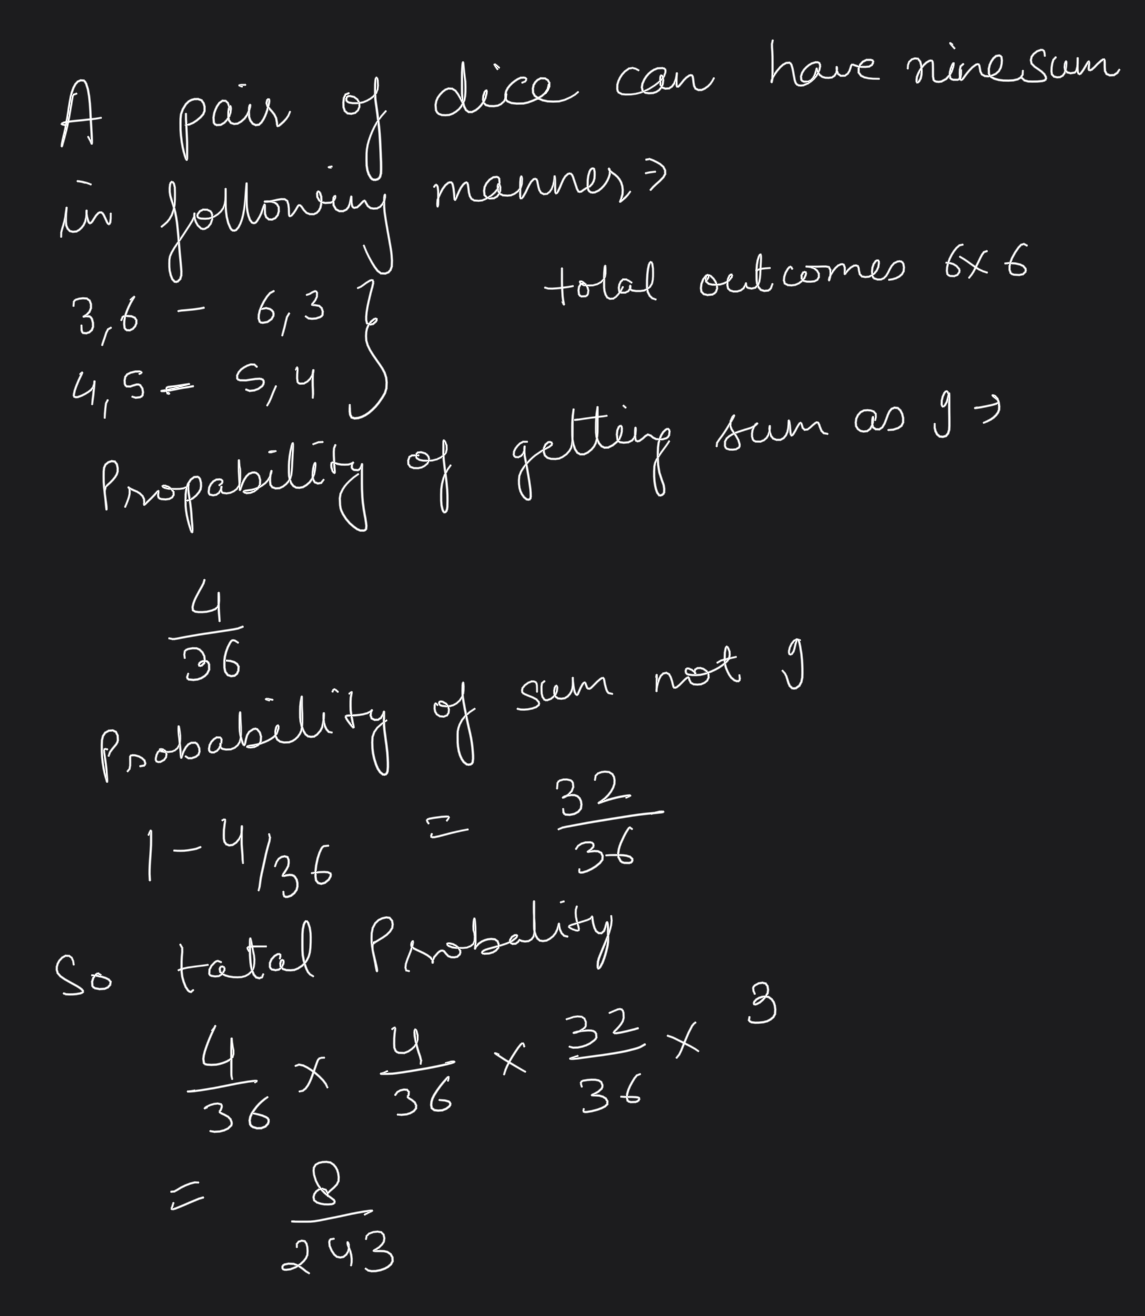 A pair of dice can have nine sum
in following manner ⇒
3,6 - 6,3 }
total outcomes 6×6
4,5 - 5,4
Propability of getting sum as 9 →
4/36
Probability of sum not 9
1 - 4/36 = 32/36
So tatal Probality
4/36 × 4/36 × 32/36 × 3
= 8/243